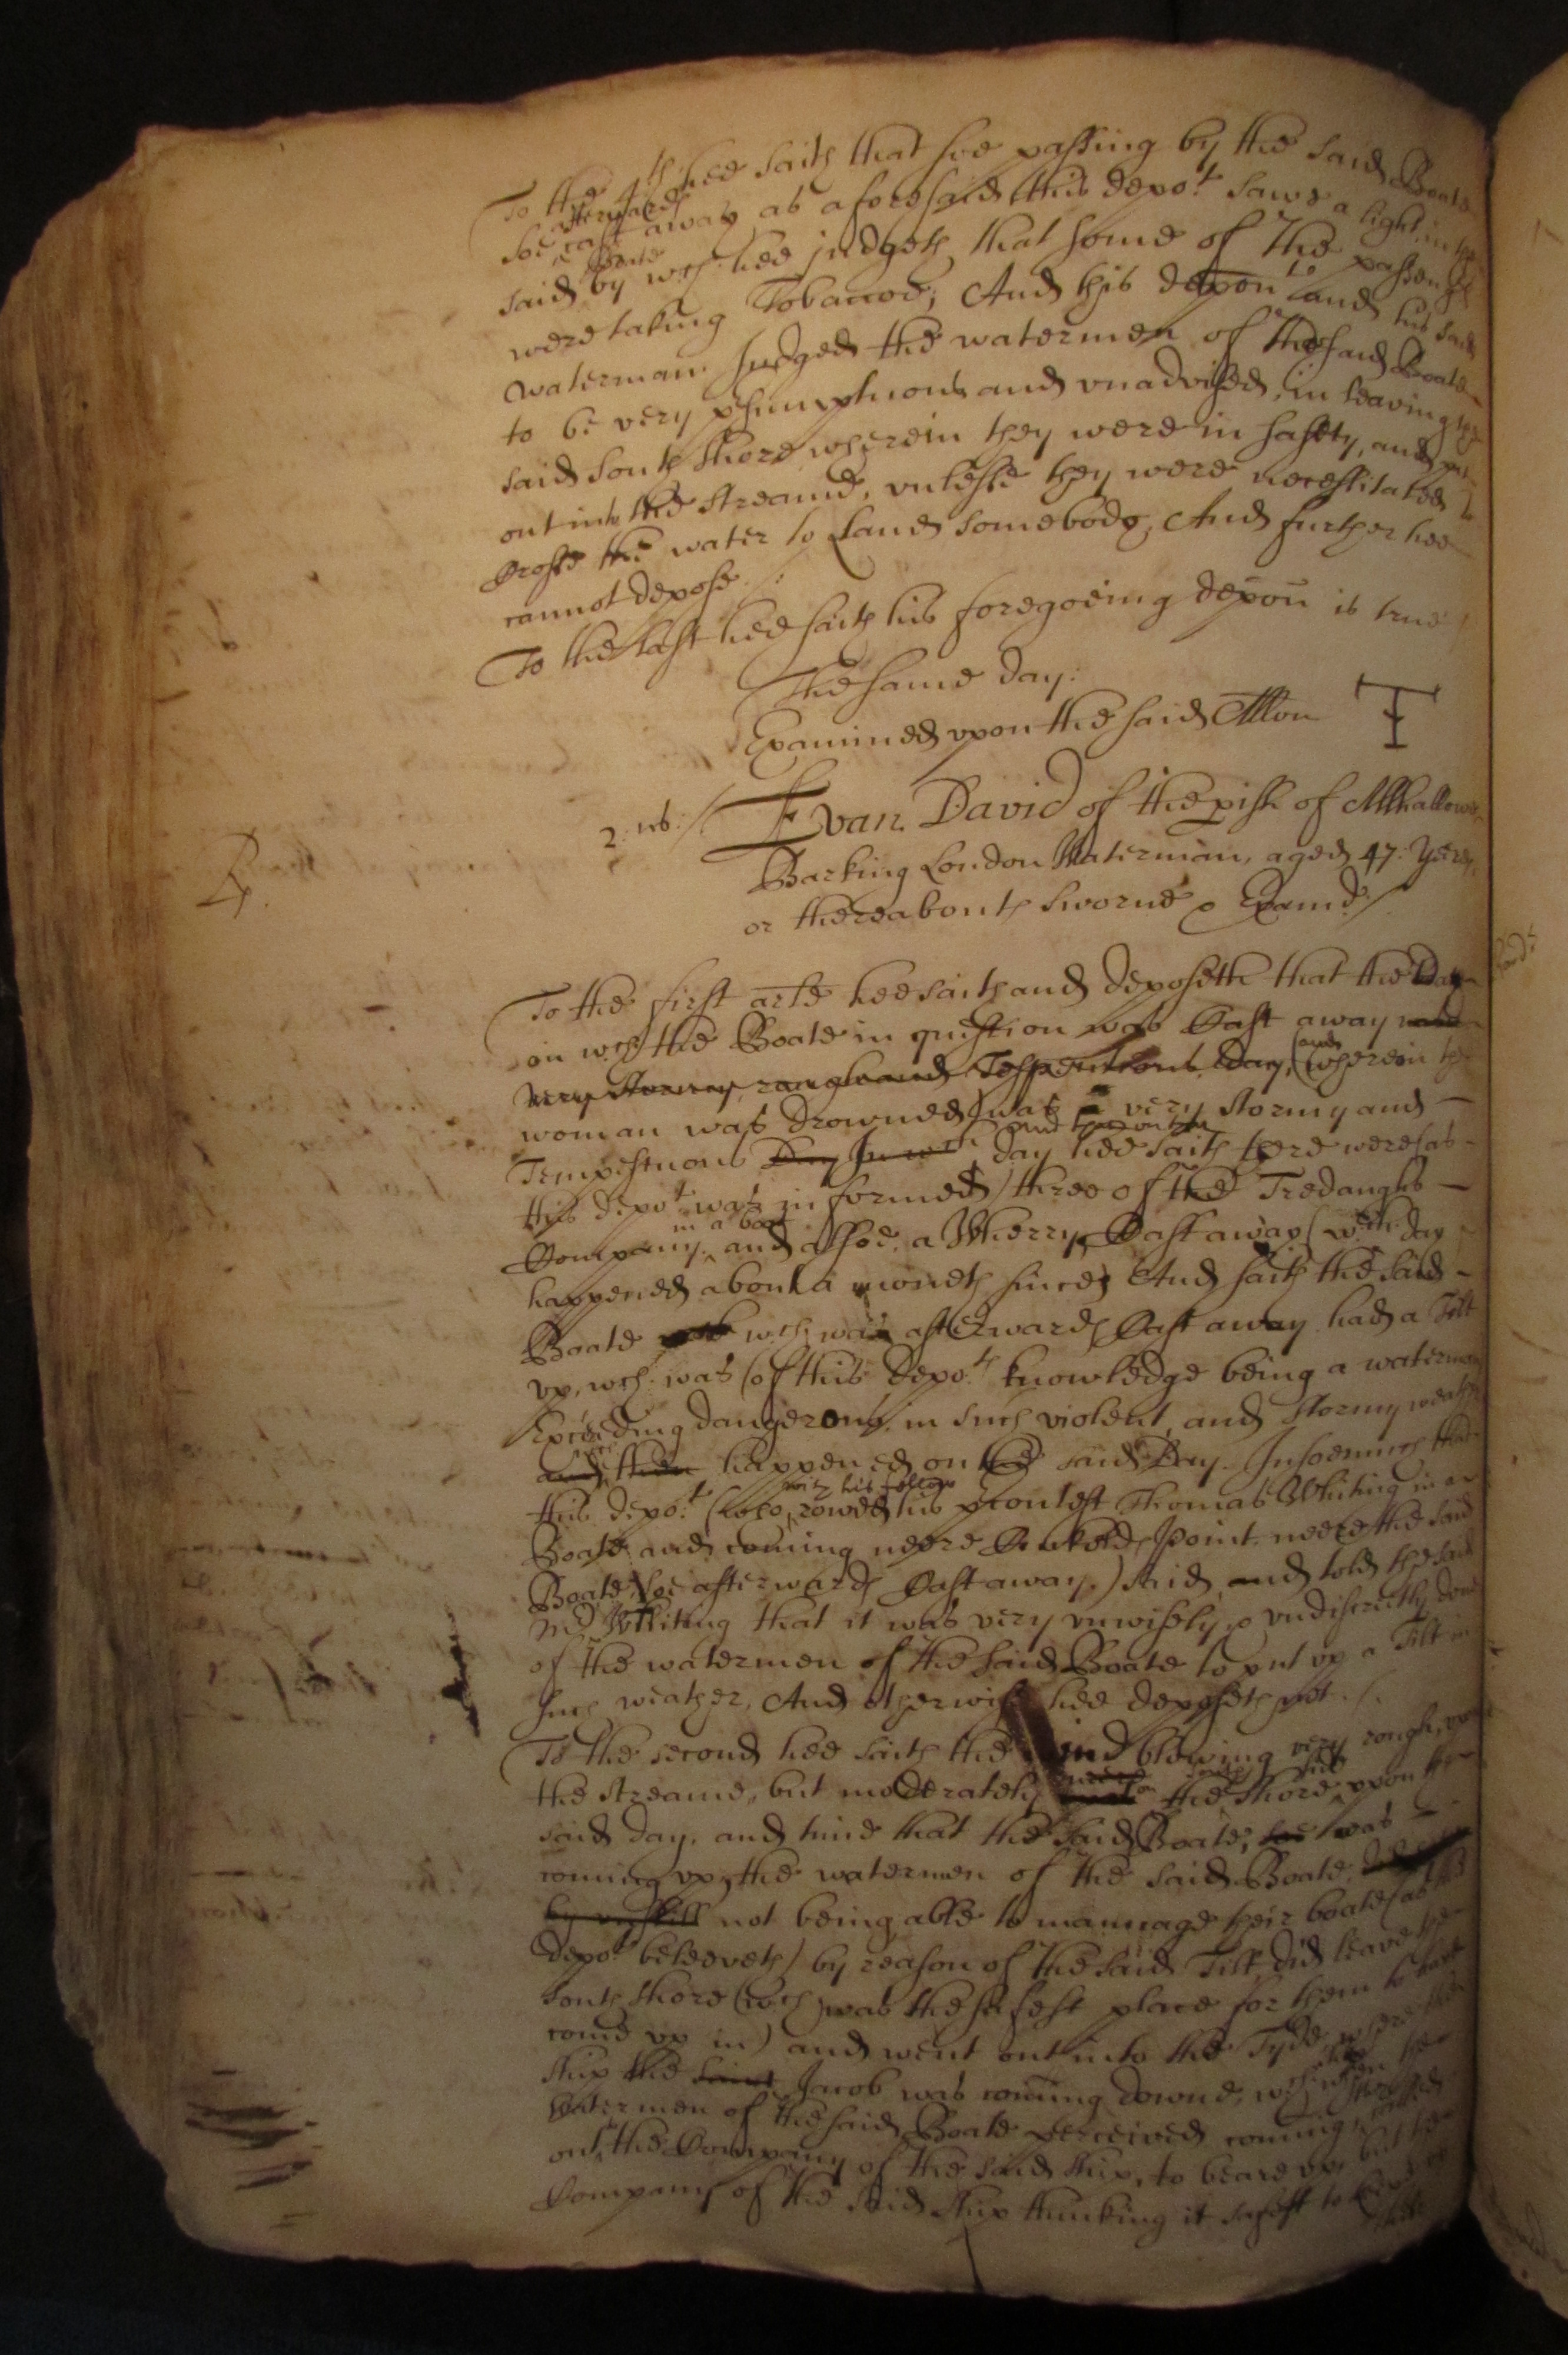 To the 4th hee saith that hee passing by the said Boate
soe afterwards cast away as aforesaid this depo.t sawe a light in the
said boate by wch: hee judgeth that some of the passengrs
were taking Tobaccoe; And this depont and his said
waterman Judged the watermen of the said Boate
to be very p̱sumptuous and vnadvised, in leaving the
said South shore wherein they were in safety, and put
out into the streame, vnlesse they were necessitated to
Crosse the water to Land somebody; And further hee
cannot depose./:
To the last hee saith his foregoeing depon̄ is true /
The same day:
Examined vpon the said Allōn
2. us:/
Evan David of the p̱ish of Allhallowes
Barking London Waterman, aged 47: Yeares
or thereabouts sworne & Examd:/
R.
To the first arle hee saith and deposeth that the day
on wch the Boate in question was Cast away
very stormy, rough and Tespentious day, (and wherein the
woman was drowned) was a very stormy and
Tempestuous Day In wch and that on the day hee saith there were (as
this depo.t was informed) three of the Tredaughs
Company in a boat and alsoe. a Wherry Cast away (wch. day
happened about a moneth since) And saith the said
Boate wch: was afterwards Cast away had a Tilt
vp, wch: was (of this depo.ts knowledge being a waterman
Exceeding dangerous, in such violent, and stormy weather
and then happened on the said Day. Insoemuch that
this depo.t (who with his fellow rowed his p̱contest Thomas Whiting in a
Boate and coming neere Cuckolds Point neere the said
Boate soe afterwards Cast away,) said, and told the said
Mr Whiting that it was very vnwisely & vndiscreetly done
of the watermen of the said Boate to put vp a Tilt in
such weather, And otherwise hee deposeth not./.
To the second hee saith the wind blowing very rough, vpon
the streame, but moderately on the South shore side vpon the
said day, and time that the said Boate, was
coming vp, the watermen of the said Boate,
by vnskill not being able to mannage their boate (as this
depo.t beleeveth) by reason of the said Tilt, did leave the
South shore (wch was the safest place for them to have
come vp in) and went out into the Tyde where the
ship the said Jacob was coming downe, wch when the
Watermen of the said Boate perceived coming,
out, the Company of the said ship, to beare vp, but the
Company of the said ship thinking it safest to